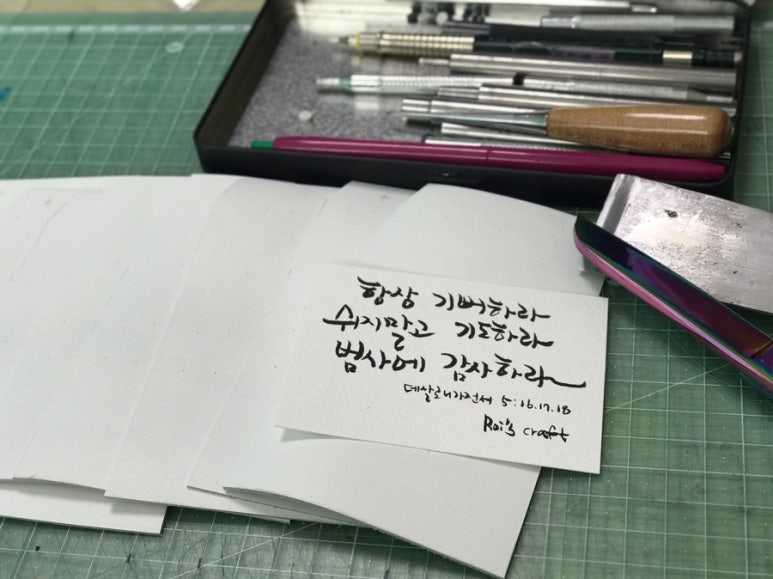 항상 기뻐하라
쉬지말고 기도하라
범사에 감사하라
데살로니가전서 5:16.17.18
Roi's craft